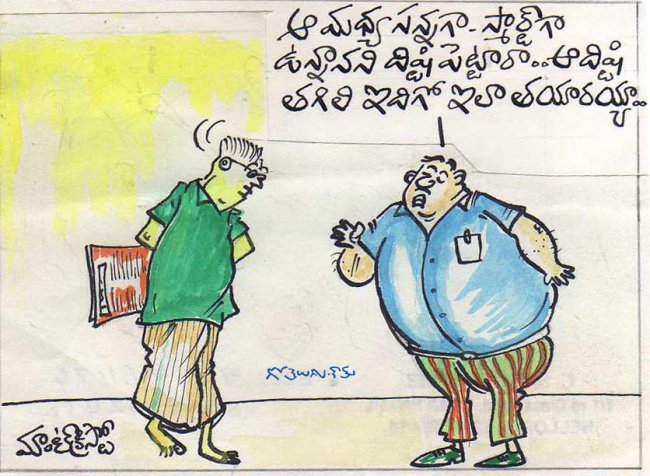 ఆ మధ్య సన్నగా- స్మార్ట్‌గా
ఉన్నానని దిష్టి పెట్టారా..ఆదిష్టి
తగిలి ఇదిగో ఇలా తయారయ్యా..
గోతెలుగు.కామ్